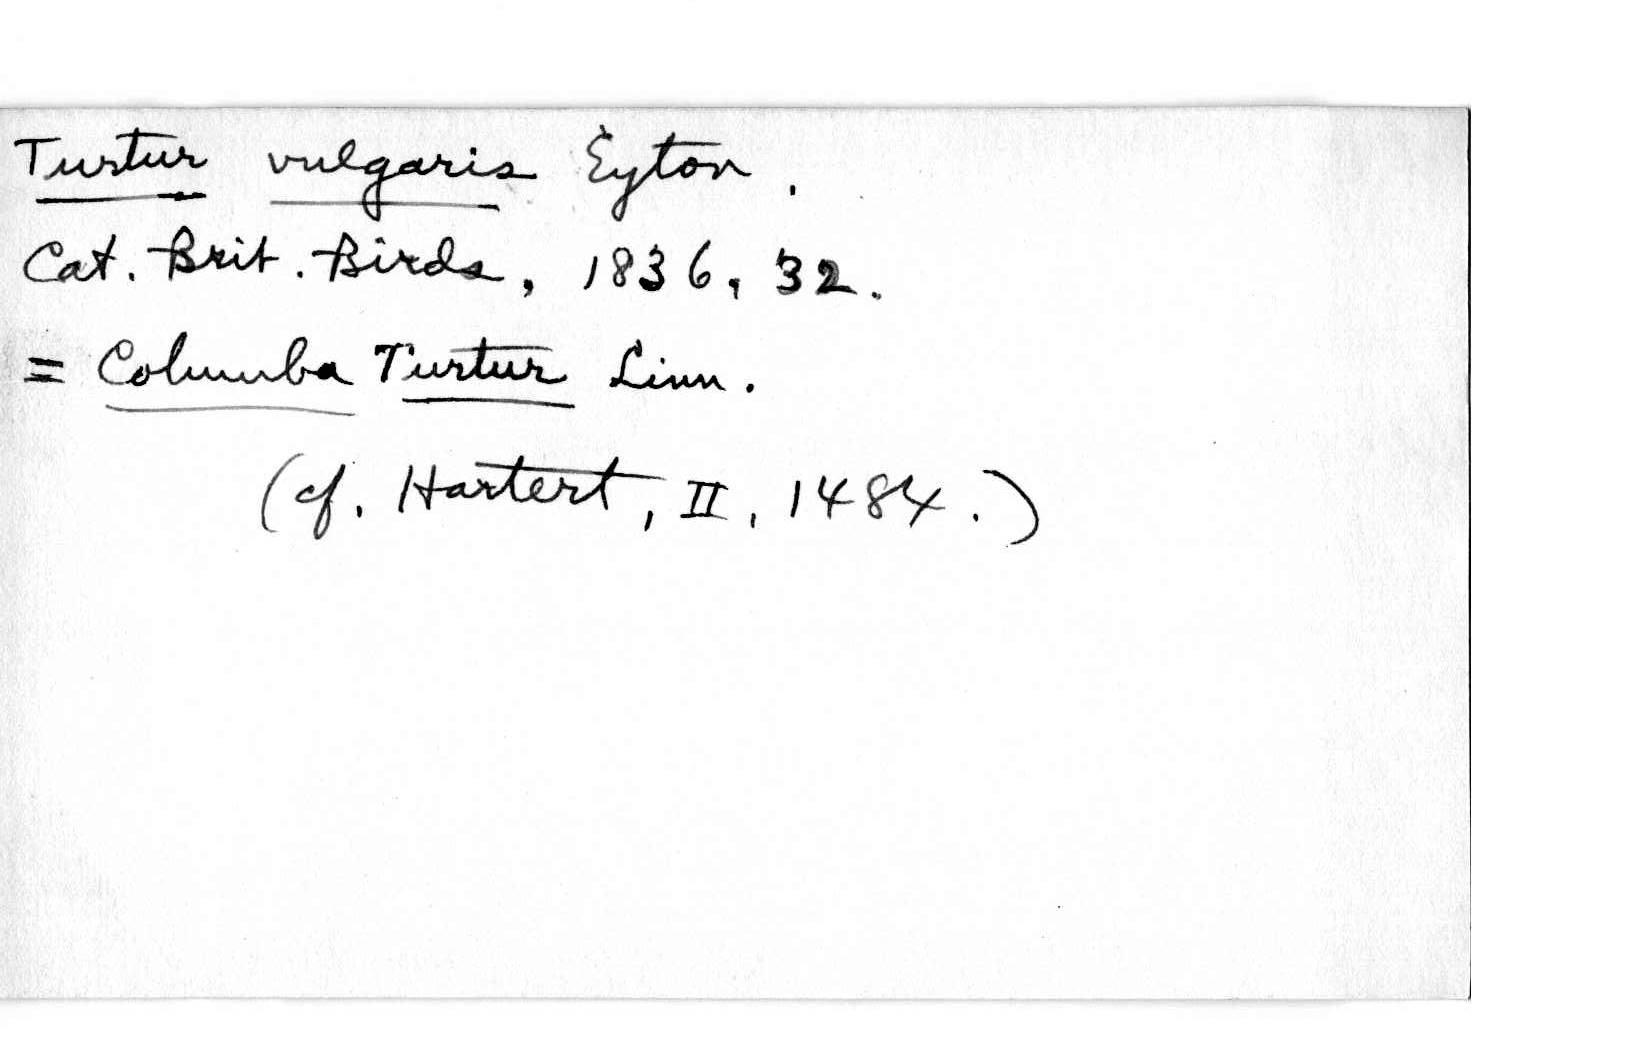 Turtur vulgaris Eyton.
Cat. Brit. Birds, 1836, 32.
= Columba Turtur Linn.
(cf. Hartert, II, 1484.)